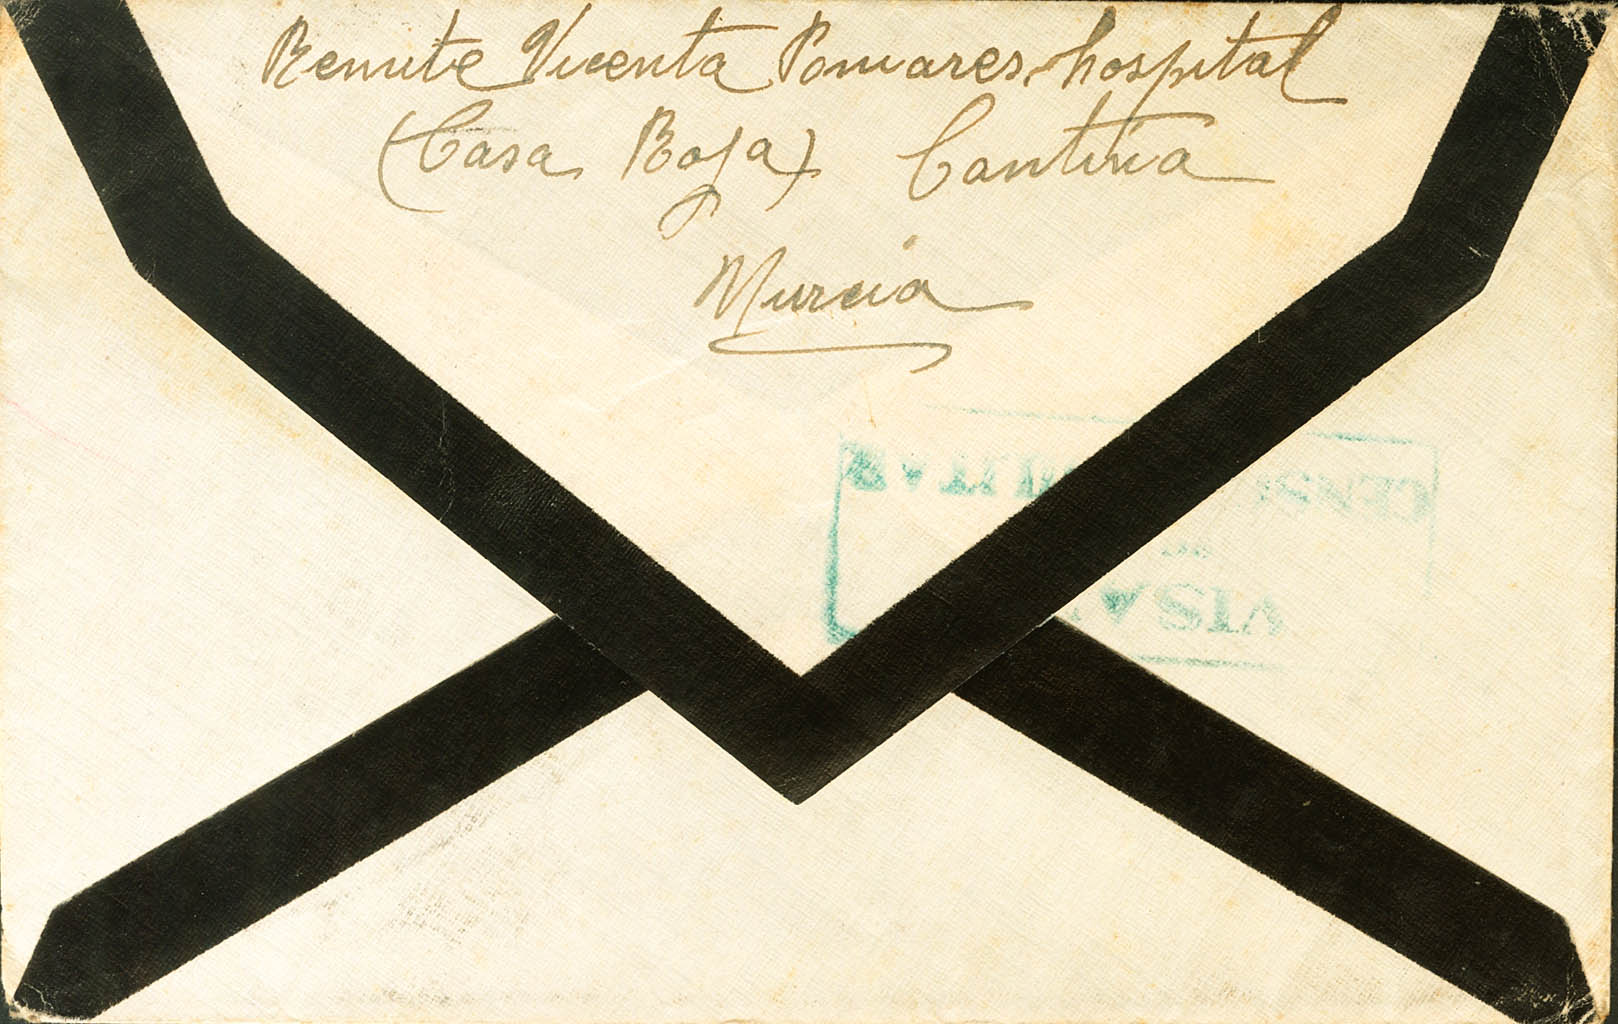 Remite Vicenta Pomares, hospital
(Casa Roja) Cantina
Murcia
CENS MILITAR
VISA